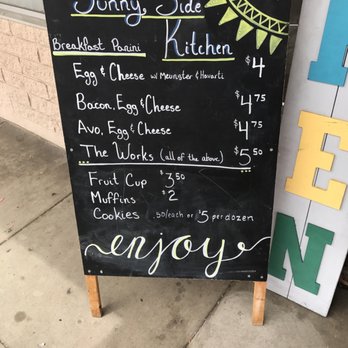 Sunny Side
Kitchen
Breakfast Panini
Egg & Cheese w/ Meunster & Havarti $4
Bacon, Egg & Cheese $4.75
Avo, Egg & Cheese $4.75
The Works (all of the above) $5.50
Fruit Cup $3.50
Muffins $2
Cookies .50/each or $5 per dozen
enjoy
PEN